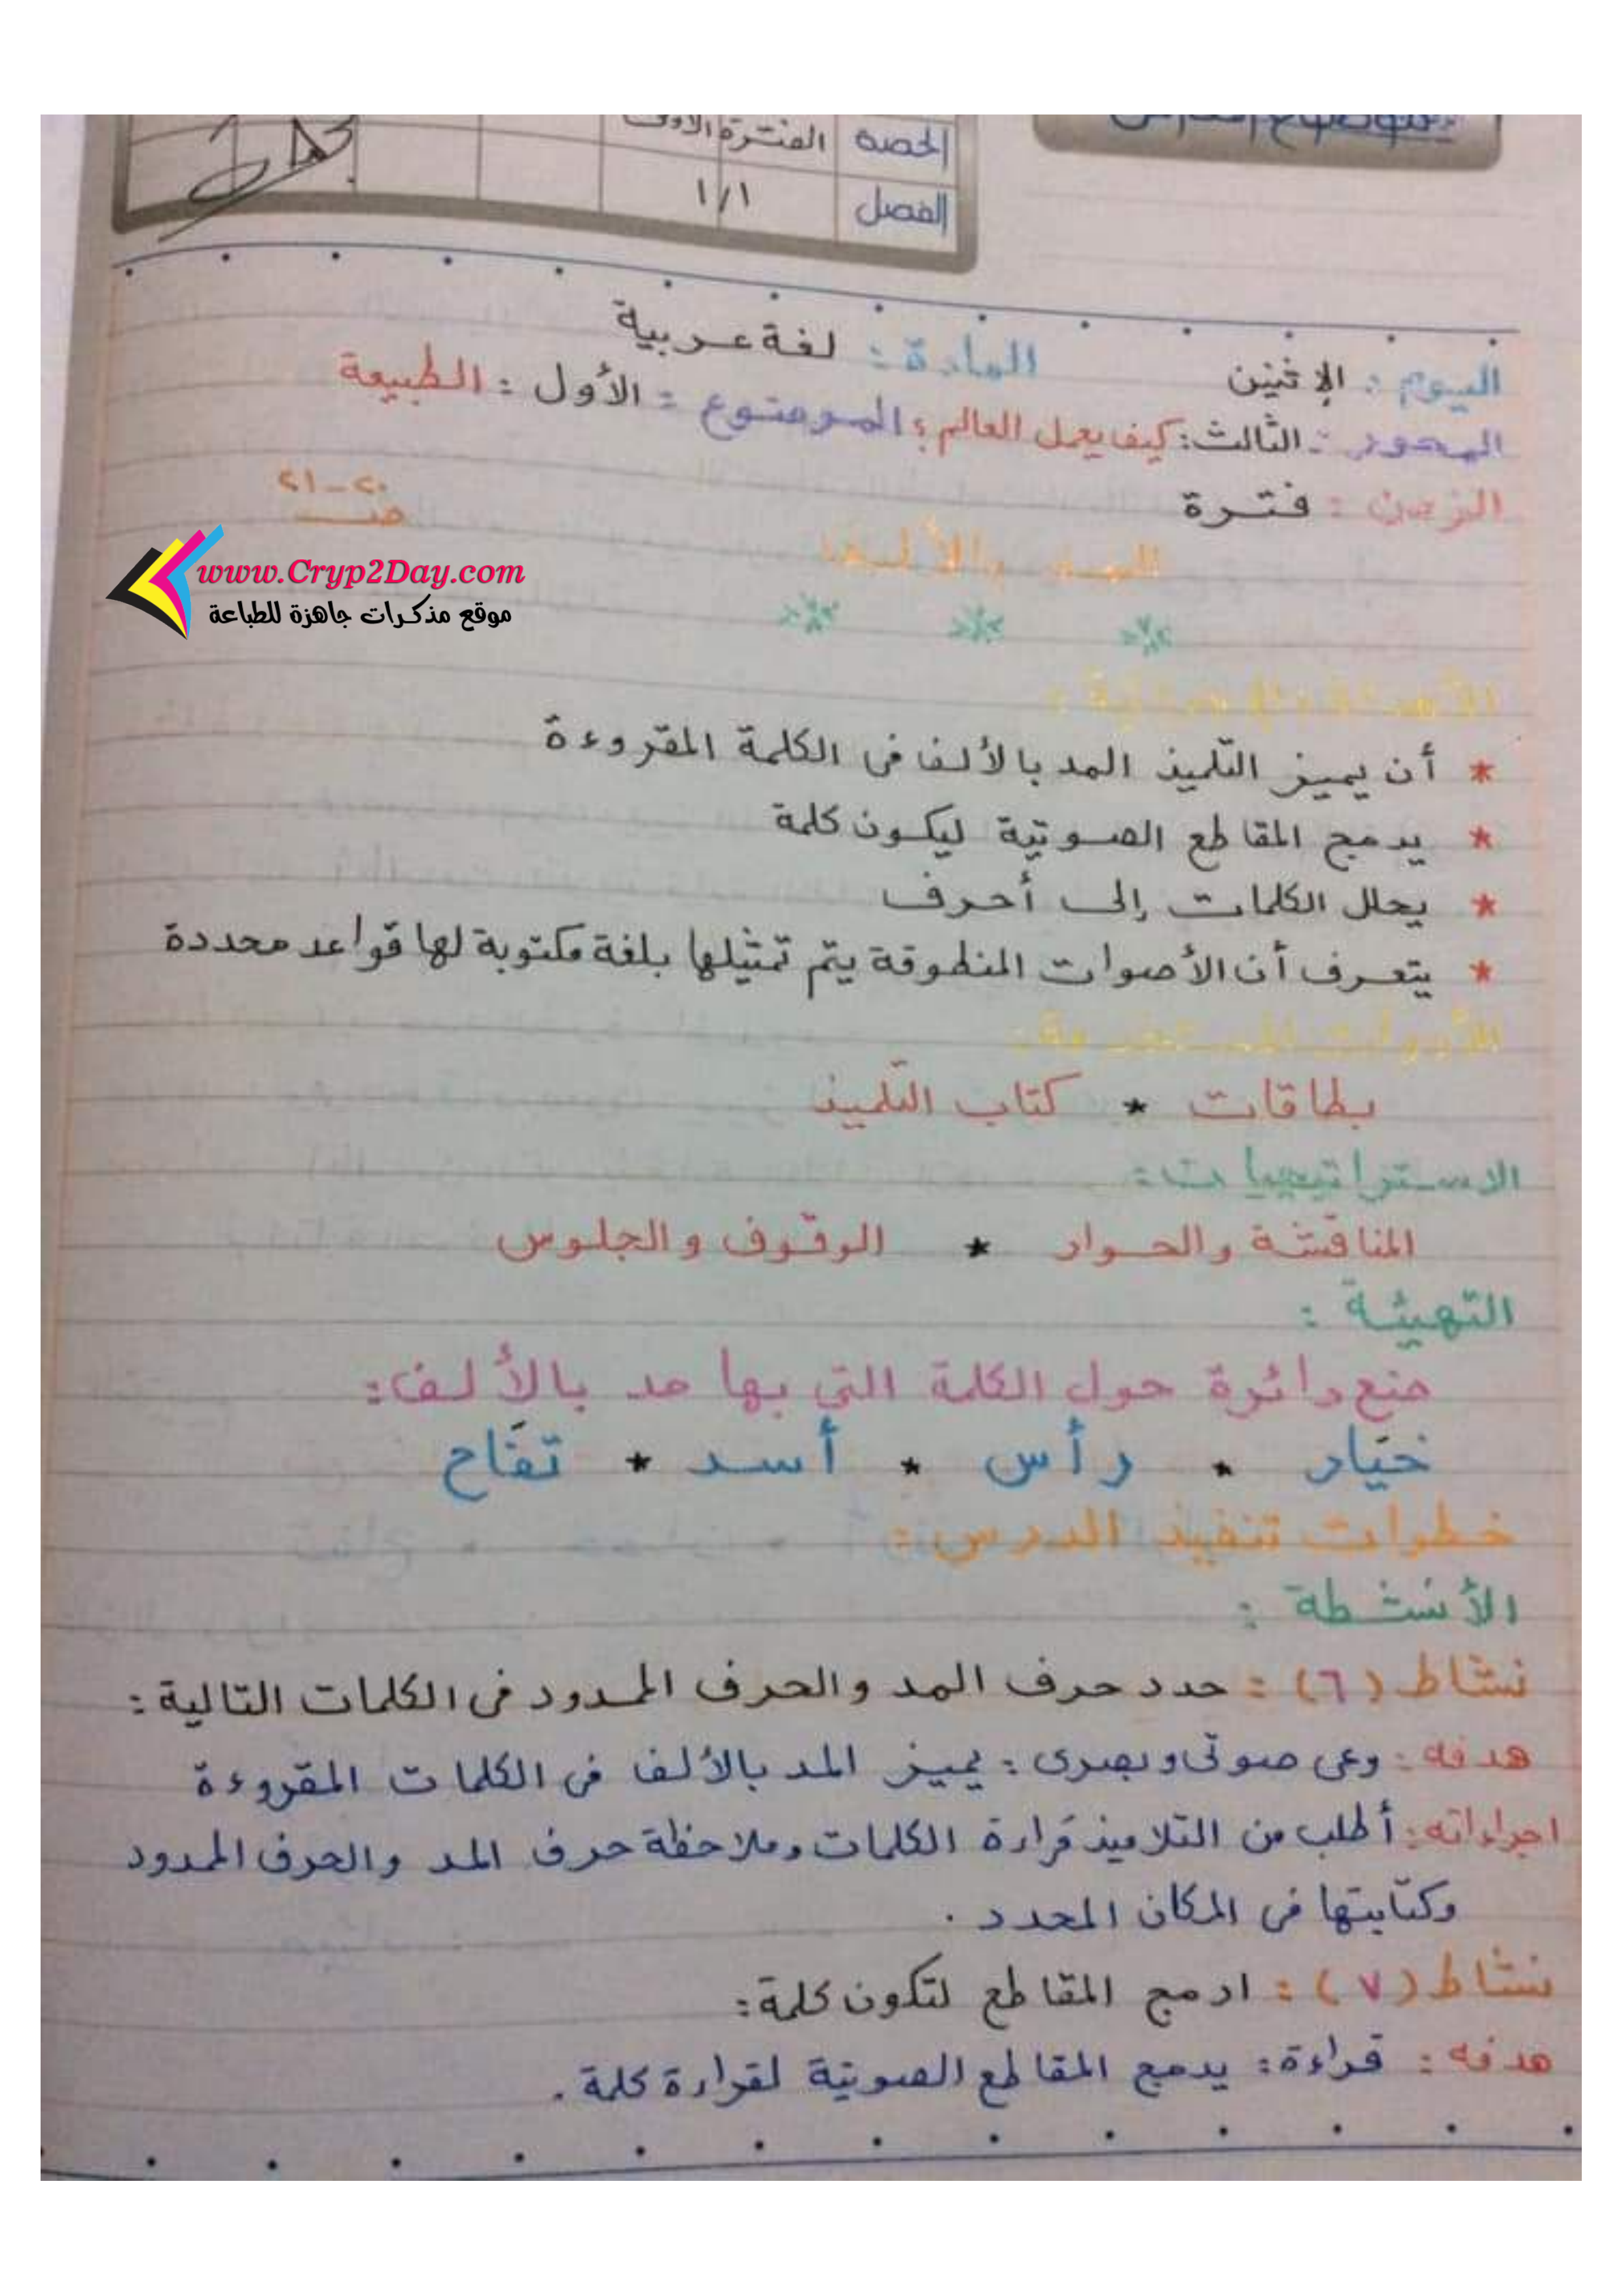 الحصة الفترة الأولى
الفصل ١/١
اليوم : الإثنين المادة : لغة عربية
المحور : الثالث : كيف يعمل العالم ؟ الموضوع : الأول : الطبيعة
الزمن : فترة
ص ٢٠ - ٢١
المد بالألف
www.Cryp2Day.com
موقع مذكرات جاهزة للطباعة
* أن يميز التلميذ المد بالألف فى الكلمة المقروءة
* يدمج المقاطع الصوتية ليكون كلمة
* يحلل الكلمات إلى أحرف
* يتعرف أن الأصوات المنطوقة يتم تمثيلها بلغة مكتوبة لها قواعد محددة
الأدوات المستخدمة :
بطاقات * كتاب التلميذ
الاستراتيجيات :
المناقشة والحوار * الوقوف والجلوس
التهيئة :
ضع دائرة حول الكلمة التى بها مد بالألف :
خيار * رأس * أسد * تفاح
خطوات تنفيذ الدرس :
الأنشطة :
نشاط (٦) : حدد حرف المد والحرف الممدود فى الكلمات التالية :
هدفه : وعى صوتى وبصرى : يميز المد بالألف فى الكلمات المقروءة
اجراءاته : أطلب من التلاميذ قراءة الكلمات وملاحظة حرف المد والحرف الممدود
وكتابتها فى المكان المحدد .
نشاط (٧) : ادمج المقاطع لتكون كلمة :
هدفه : قراءة : يدمج المقاطع الصوتية لقراءة كلمة .